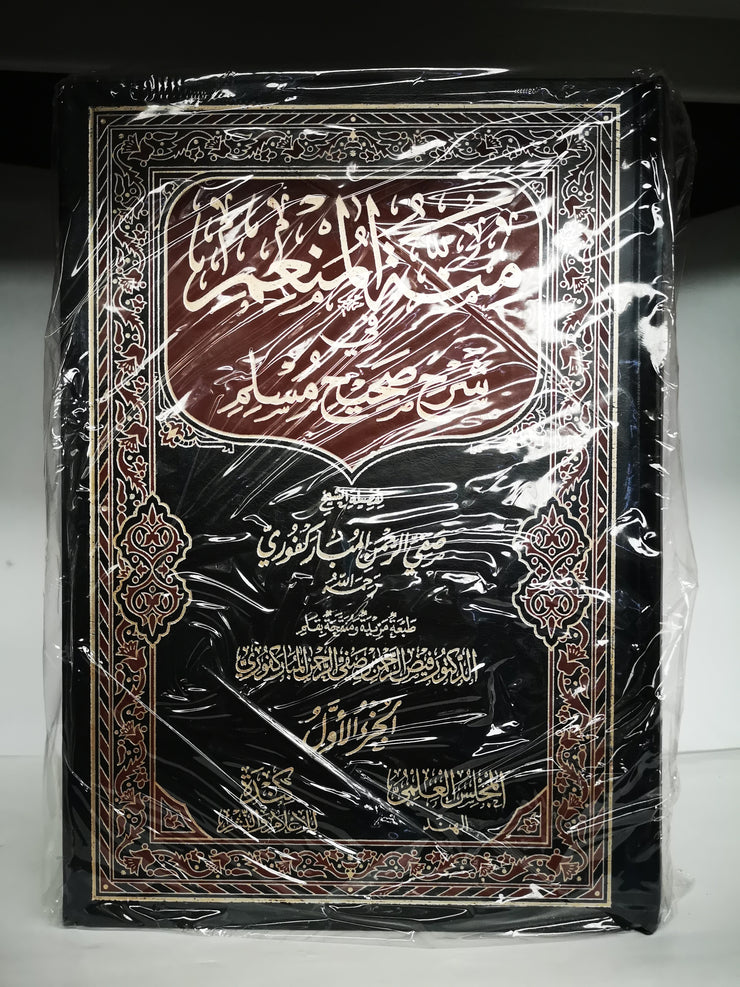 مِنَّةُ الْمُنْعِمِ
فِي
شَرْحِ صَحِيحِ مُسْلِمٍ
لفضيلة الشيخ
صَفِيِّ الرَّحْمَنِ الْمُبَارَكْفُورِيِّ
رَحِمَهُ اللَّهُ
طَبْعَةٌ مَزِيدَةٌ وَمُنَقَّحَةٌ بِقَلَمِ
الدكتور فيض الرحمن بن صفي الرحمن المباركفوري
الْجُزْءُ الْأَوَّلُ
المجلس العلمي
الهند
كندة
للإعلام والنشر